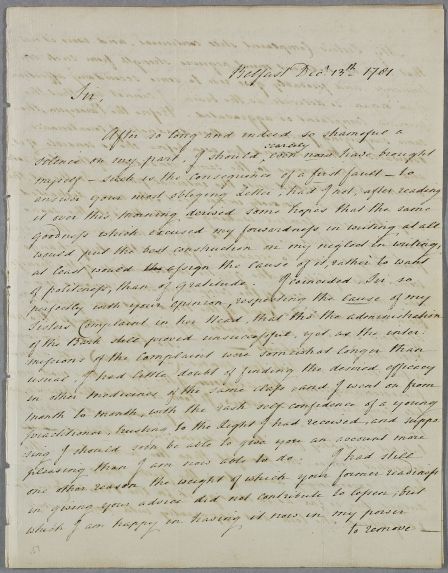 Belfast Decr. 13th. 1781
Sir,
After so long and indeed so shameful a
scarcely
silence on my part, I should, even now have brought
myself – such is the consequence of a first fault – to
answer your most obliging Letter, had I not, after reading
it over this morning, derived some hopes that the same
goodness which excused my forwardness in writing at all
would put the best construction on my neglect in writing,
at least would the assign the cause of it, rather to want
of politeness, than of gratitude. I coincided Sir, so
perfectly with your opinion, respecting the cause of my
Sisters Complaint in her Head, that tho the administration
of the Bark still proved unsuccessful, yet as the inter
missions of the Complaint were somewhat longer than
usual, I had little doubt of finding the desired efficacy
in other medicines of the same class and I went on from
month to month, with the rash self confidence of a young
practitioner, trusting to the light I had received, and suppo
sing I should soon be able to give you an account more
pleasing than I am now able to do. I had still
one other reason the weight of which your former readiness
in giving your advice did not contribute to lessen, but
which I am happy in having it now in my power
to remove —